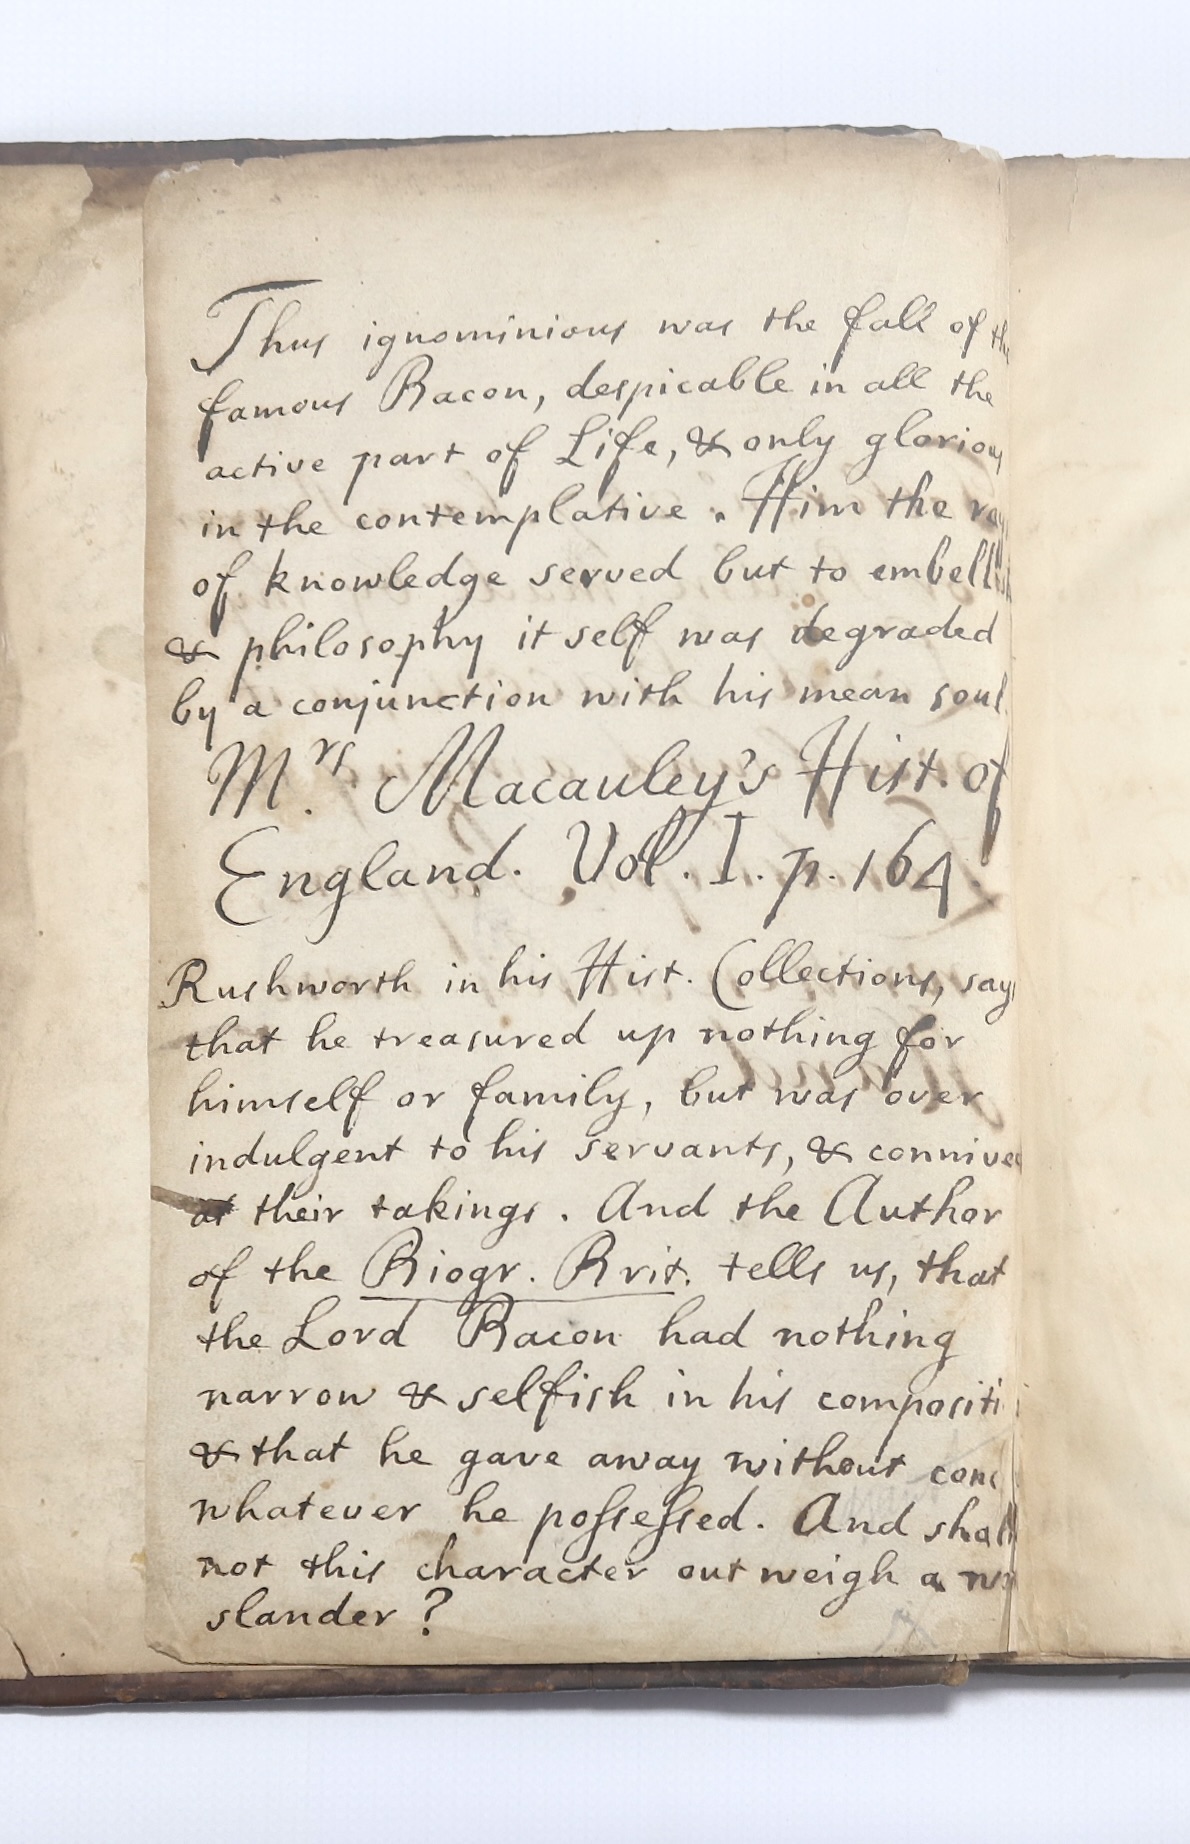 Thus ignominious was the fall of the
famous Bacon, despicable in all the
active part of Life, & only glorious
in the contemplative. Him the
of knowledge served but to embellish
& philosophy it self was degraded
by a conjunction with his mean soul
Mrs. Macauley's Hist. of
England. Vol. I. p. 164.
Rushworth in his Hist. Collections, says
that he treasured up nothing for
himself or family, but was over
indulgent to his servants, & connived
at their takings. And the Author
of the Biogr. Brit. tells us, that
the Lord Bacon had nothing
narrow & selfish in his compositi
& that he gave away without conc
whatever he poſseſsed. And shall
not this character outweigh a
slander?